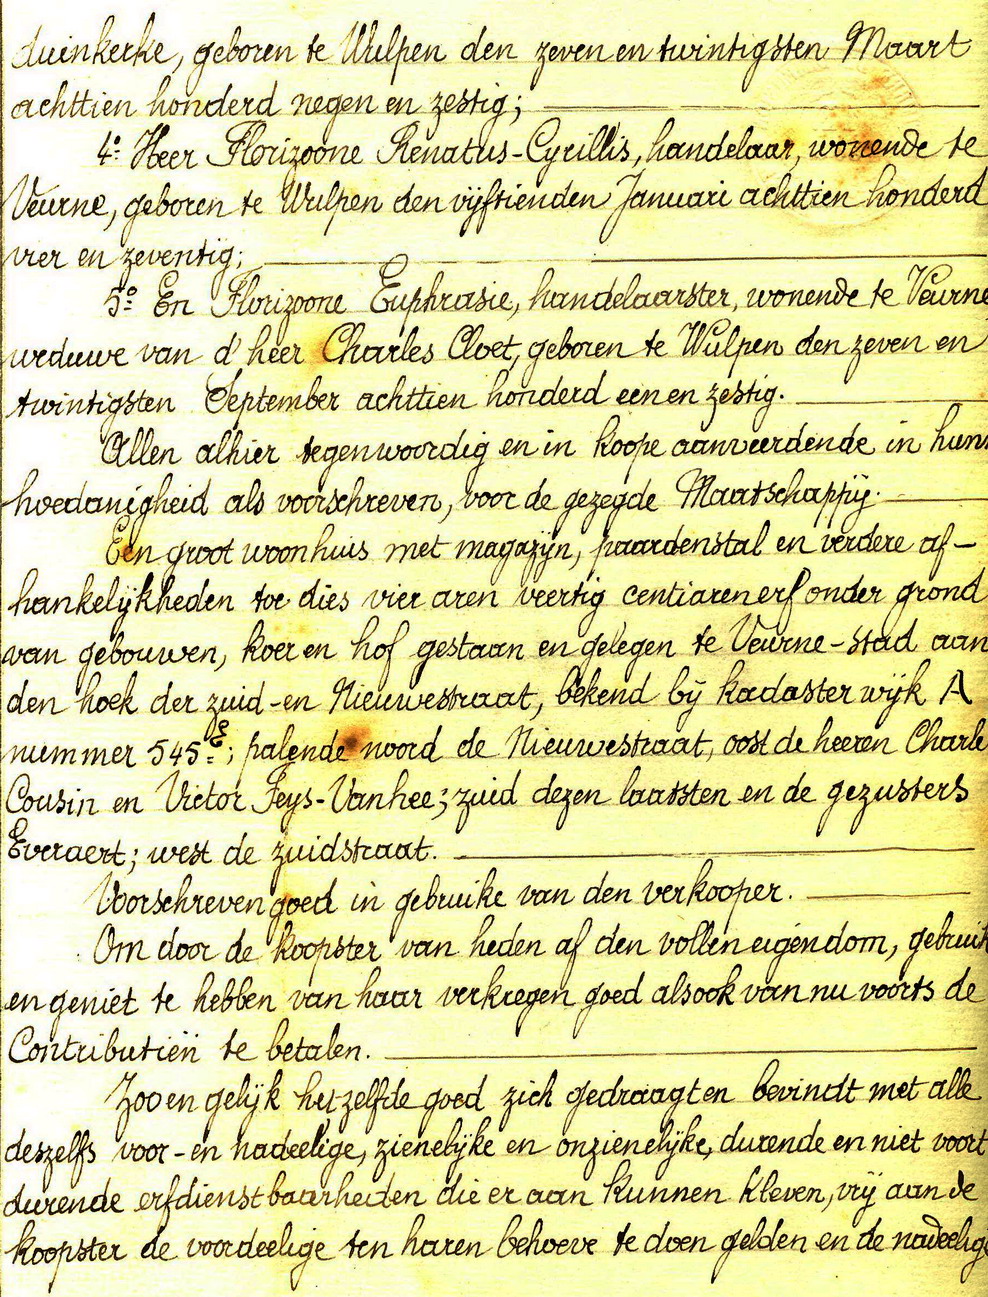 duinkerke, geboren te Wulpen den zeven en twintigsten Maart
achttien honderd negen en zestig;
4º Heer Florizoone Renatus-Cyrillis, handelaar, wonende te
Veurne, geboren te Wulpen den vijftienden Januari achttien honderd
vier en zeventig;
5º En Florizoone Euphrasie, handelaarster, wonende te Veurne
weduwe van d'heer Charles Cloet, geboren te Wulpen den zeven en
twintigsten September achttien honderd een en zestig.
Allen alhier tegenwoordig en in koope aanveerdende in hun
hoedanigheid als voorschreven, voor de gezegde Maatschappij.
Een groot woonhuis met magazijn, paardenstal en verdere af-
hankelijkheden toe dies vier aren veertig centiaren erf onder grond
van gebouwen, koer en hof gestaan en gelegen te Veurne-stad aan
den hoek der zuid-en Nieuwestraat, bekend bij kadaster wijk A
nummer 545E; palende noord de Nieuwestraat, oost de heeren Charle
Cousin en Victor Feys-Vanhee; zuid dezen laatsten en de gezusters
Everaert; west de zuidstraat.
Voorschreven goed in gebruike van den verkooper.
Om door de koopster van heden af den vollen eigendom, gebruik
en geniet te hebben van haar verkregen goed alsook van nu voorts de
Contributiën te betalen.
Zoo en gelijk hetzelfde goed zich gedraagt en bevindt met alle
deszelfs voor-en nadeelige, zienelijke en onzienelijke, durende en niet voort
durende erfdienstbaarheden die er aan kunnen kleven, vrij aan de
koopster de voordeelige ten haren behoeve te doen gelden en de nadeelige